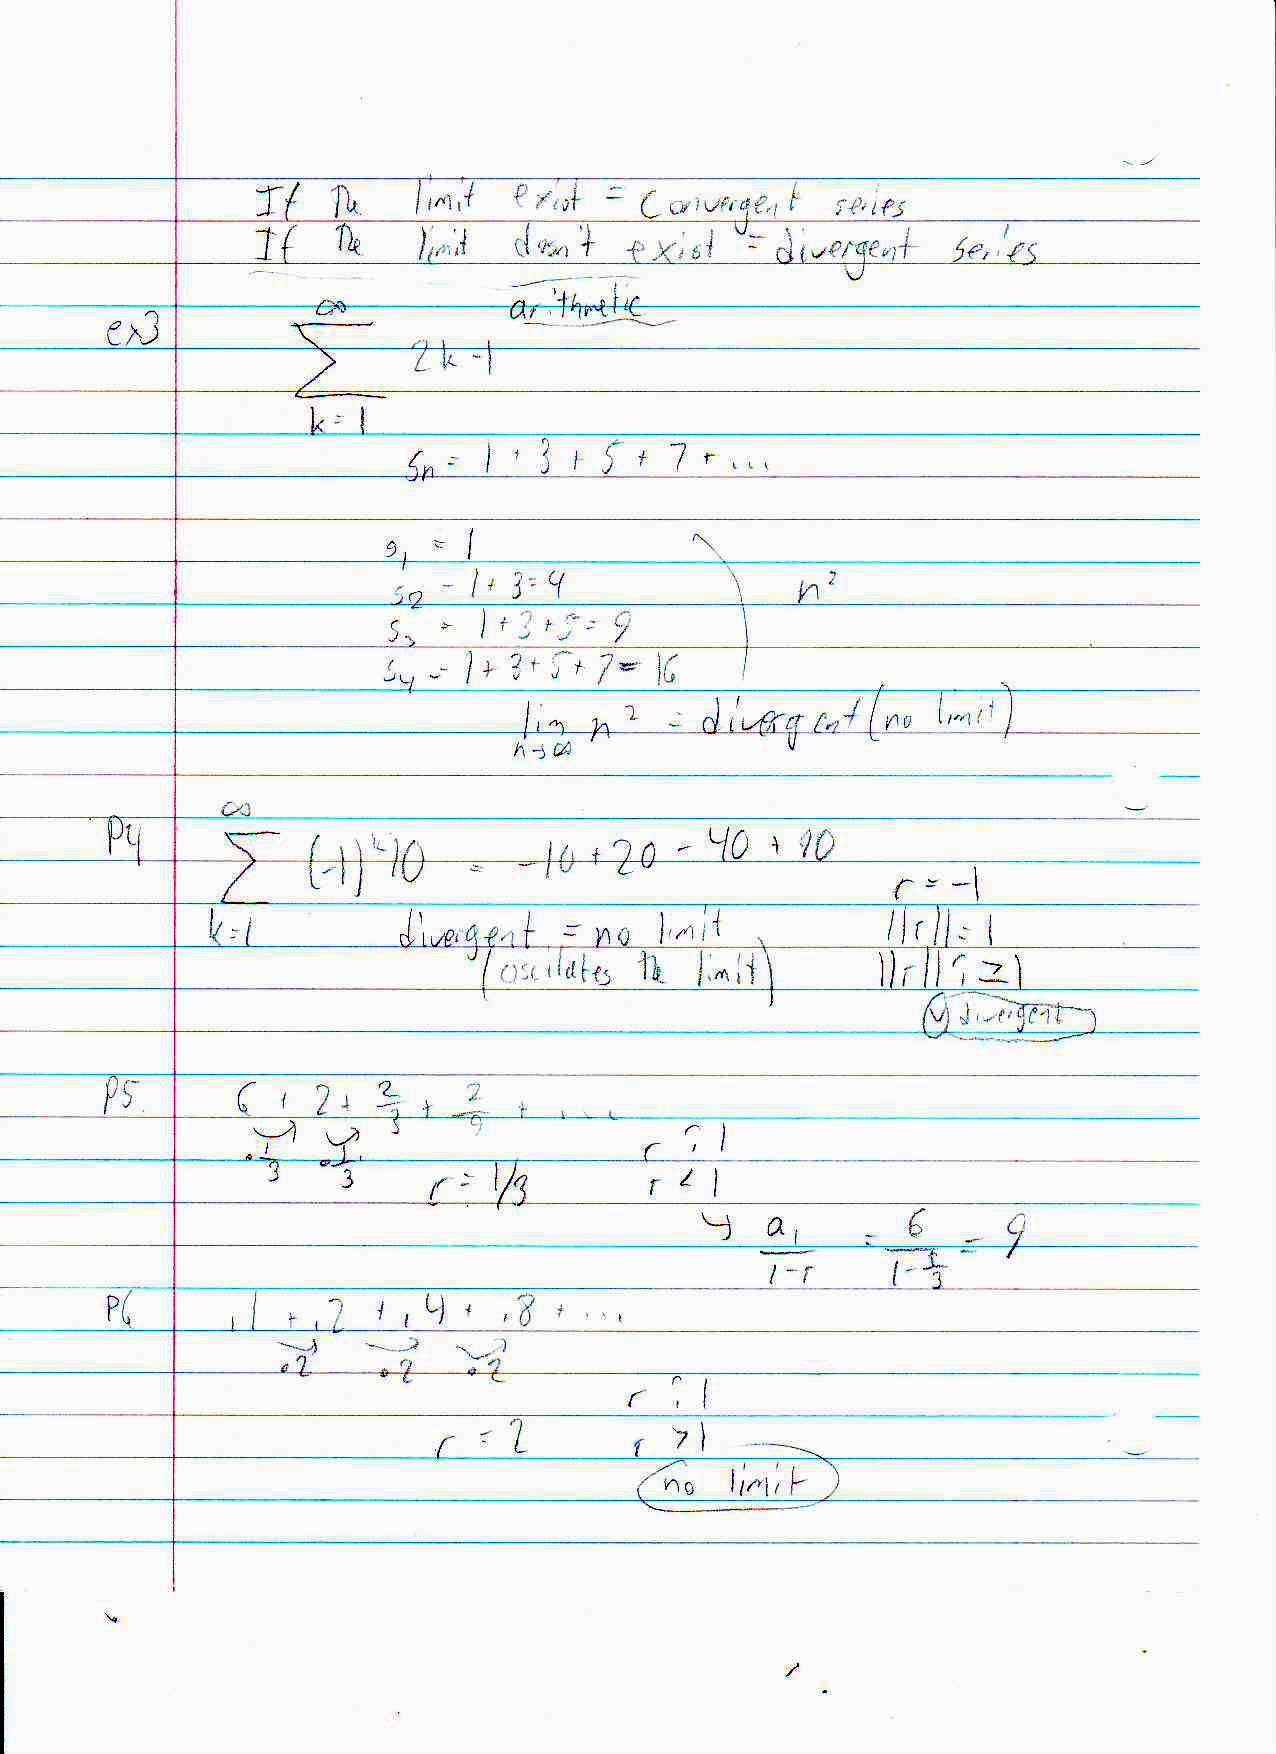 If The limit exist = convergent series
If The limit dosn't exist = divergent series
arithmetic
ex3 ∞ ∑ k=1 2k-1
Sn = 1 + 3 + 5 + 7 + ...
S1 = 1
S2 = 1+3=4
n²
S3 = 1+3+5=9
S4 = 1+3+5+7=16
lim n→∞ n² = divergent (no limit)
P4 ∞ ∑ k=1 (-1)^k 10 = -10+20-40+
r = -1
divergent = no limit ||r|| = 1
(oscilates the limit) ||r|| ? ≥ 1
divergent
P5. 6 + 2 + 2/3 + 2/9 + ...
·1/3 ·1/3
r ? 1
r = 1/3 r < 1
↳ a1/1-r = 6/1-1/3 = 9
P6 .1 + .2 + .4 + .8 + ...
·2 ·2 ·2
r ? 1
r = 2 r > 1
no limit